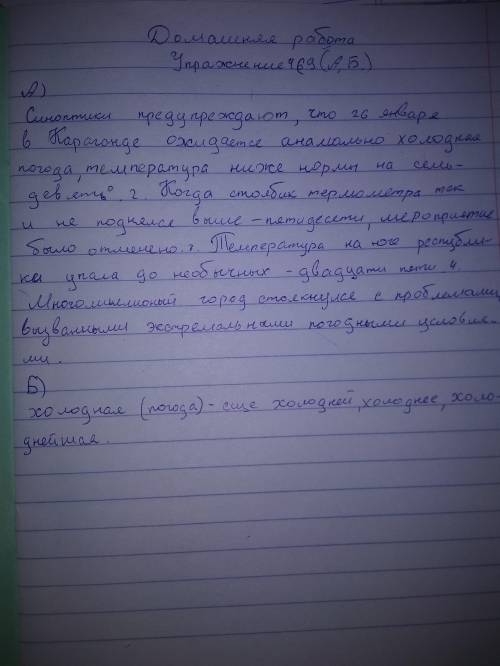 Домашняя работа
Упражнение 469 (А, Б.)
А)
Синоптики предупреждают, что 26 января
в Караганде ожидается анамально холодная
погода, температура ниже нормы на семь-
девять°. 2. Когда столбик термометра так
и не поднялся выше - пятидесяти, мероприятие
было отменено. 3. Температура на юге республи-
ки упала до необычных - двадцати пяти 4
Многомилионый город столкнулся с проблемами,
вызванными экстремальными погодными условия-
ми.
Б)
холодная (погода) - еще холодней, холоднее, холо-
днейшая.